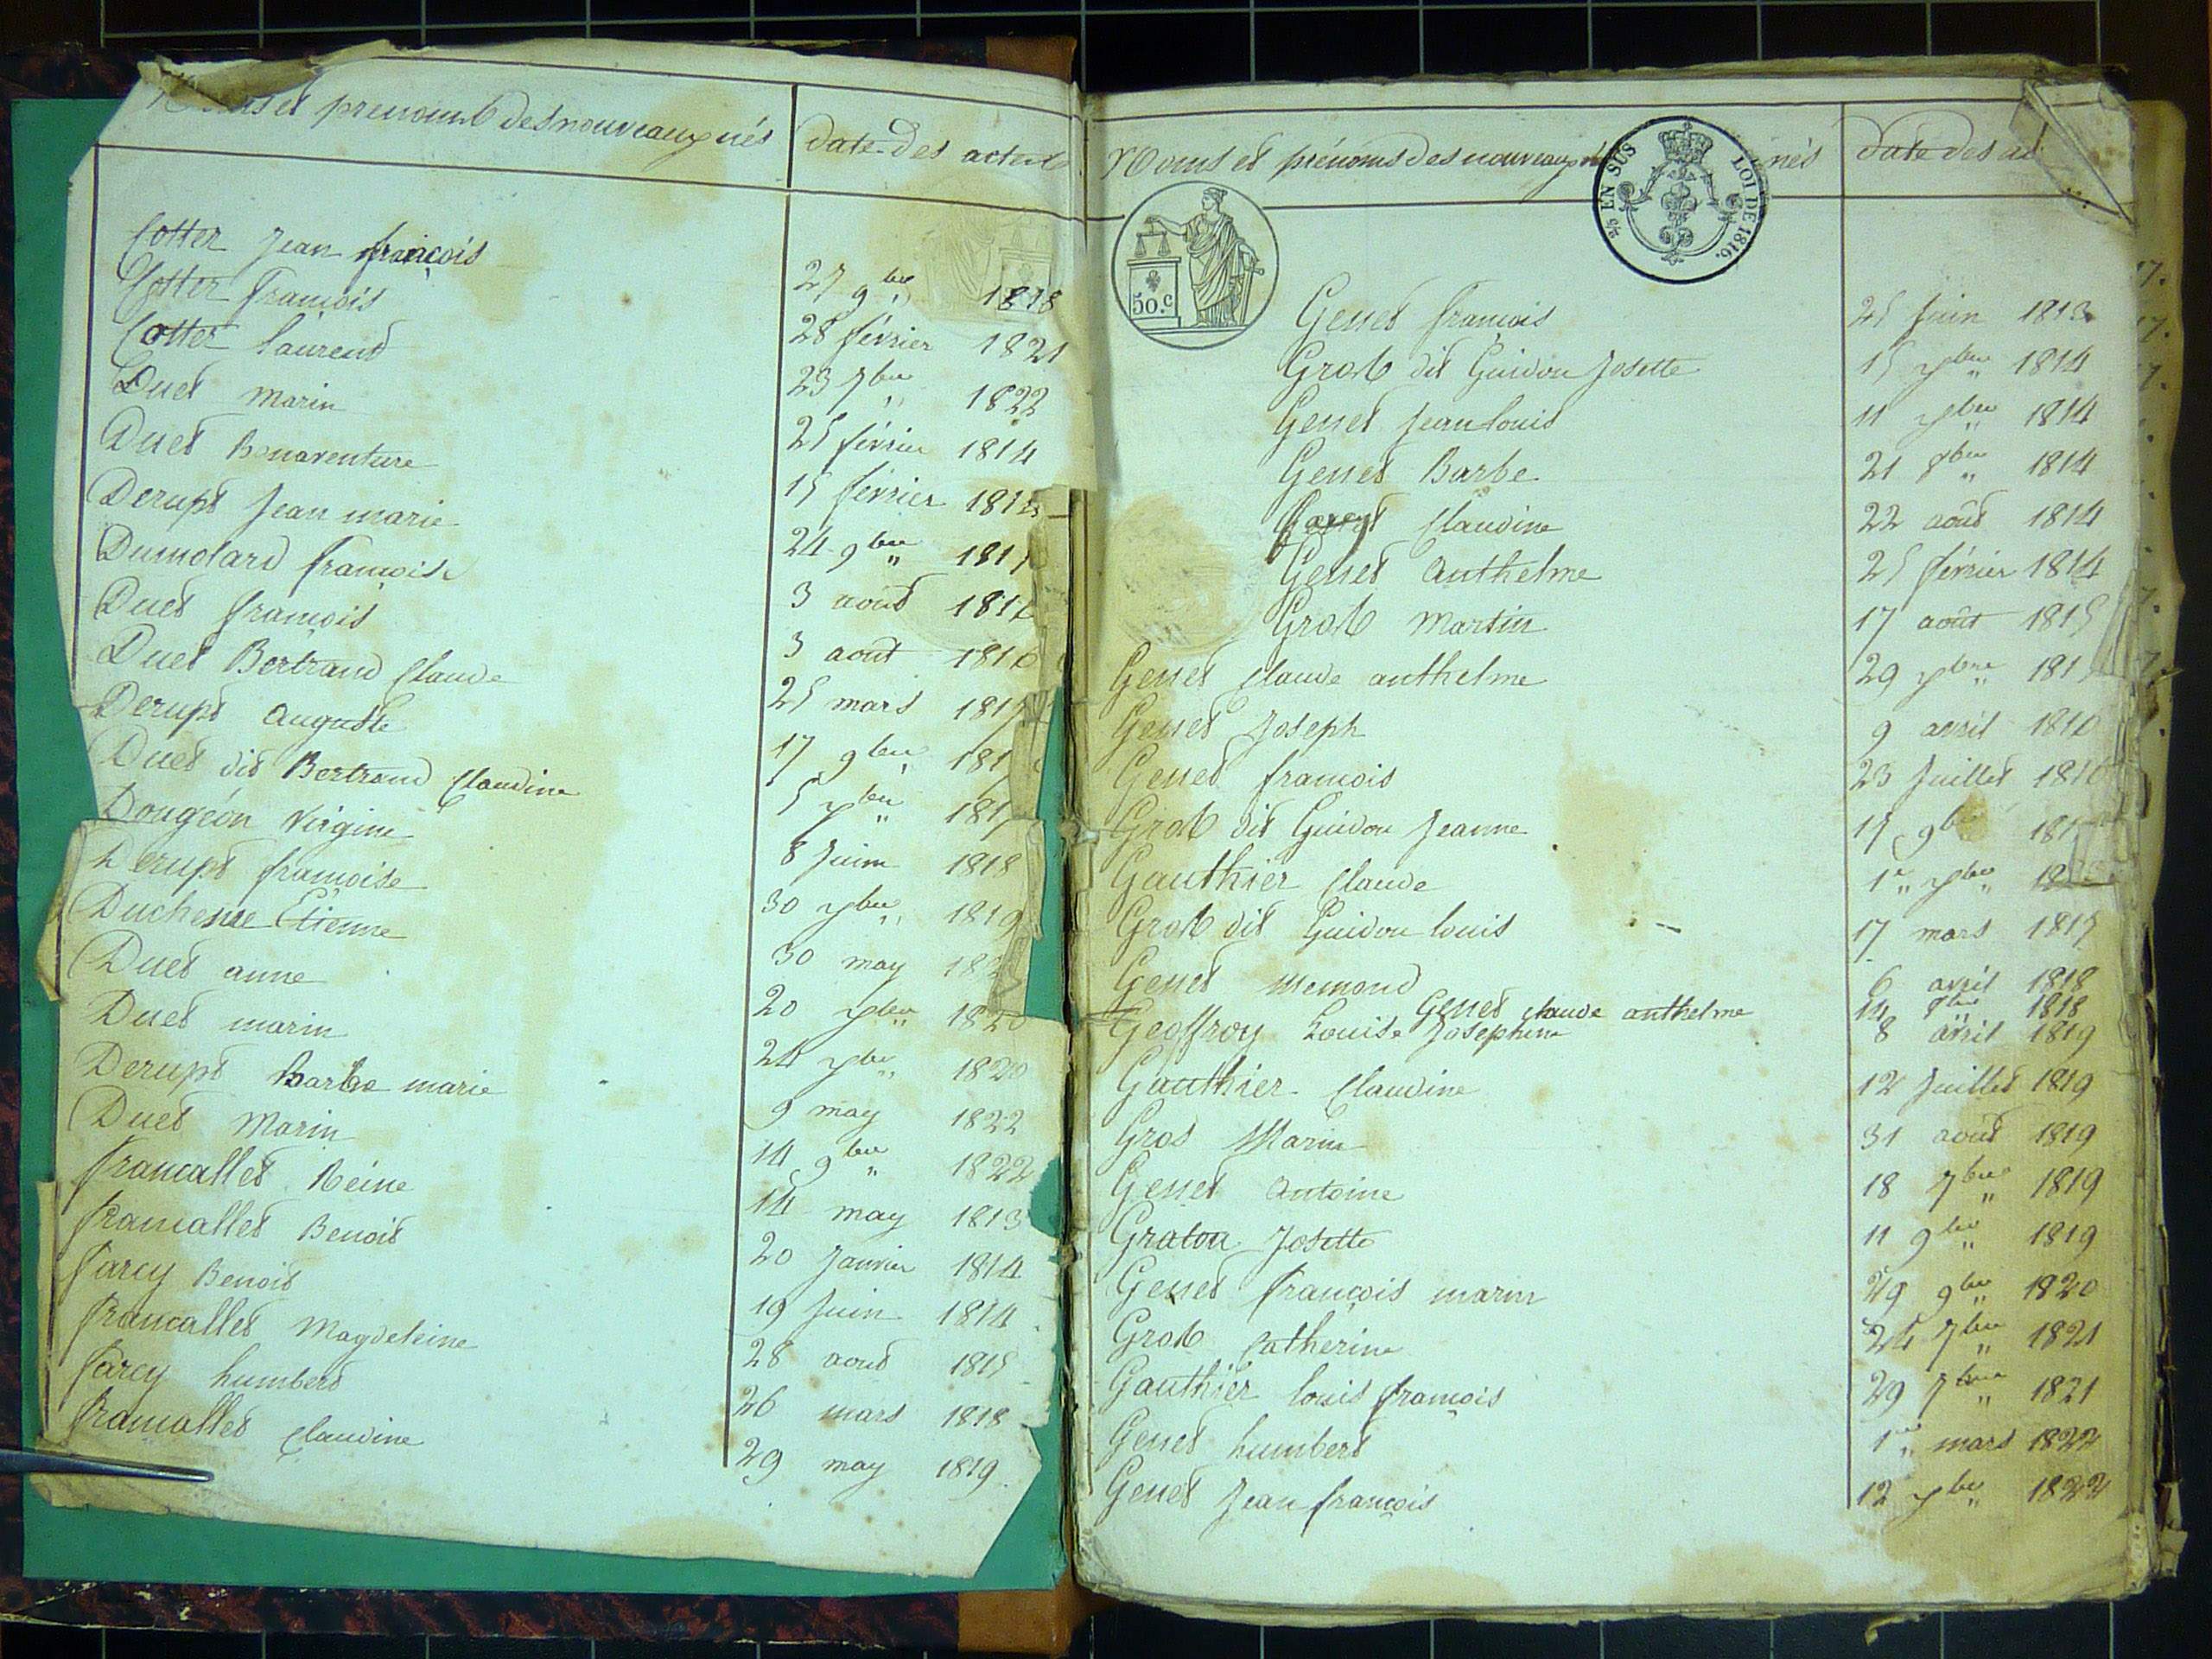 prenoms des nouveaux nés date des actes
Cotter Jean françois 27 9bre 1818
Cotter françois 28 février 1821
Cotter laurent 23 7bre 1822
Duet Marin 25 février 1814
Duet Bonaventure 15 février 1815
Derupt Jean marie 24 9bre
Dumolard françoise 3 août
Duet françois 3 aout
Duet Bertrand Claude 25 mars
Derupt Auguste 17 9bre
Duet dit Bertrand Claudine 5 7bre
Dougeon Virginie 8 Juin 1818
Derupt françoise 30 7bre 1819
Duchesne Etienne 30 may
Duet anne 20 7bre 1820
Duet marin 24 7bre 1820
Derupt Barbe marie 9 may 1822
Duet Marin 14 9bre 1822
francallet Reine 14 may 1813
francallet Benoit 20 Janvier 1814
farcy Benoit 19 Juin 1814
francallet Magdeleine 28 aout 1815
farcy humbert 26 mars 1818
francallet Claudine 29 may 1819
Noms et prénoms des nouveaux nés date des
2/5 EN SUS LOI DE 1816.
50.c
Genet françois 25 Juin 1813
Grost dit Guidou Josette 15 7bre 1814
Genet Jean louis 11 7bre 1814
Genet Barbe 21 8bre 1814
Claudine 22 août 1814
Genet Anthelme 25 février 1814
Grost Martin 17 août 1815
Genet Claude anthelme 29 7bre 1815
Genet Joseph 9 avril 1816
Genet francois 23 Juillet 1816
Grost dit Guidou Jeanne 15 9bre
Gauthier Claude 1er 7bre
Grost dit Guidou louis 17 mars 1817
Genet 6 avril 1818
Genet claude anthelme 14 8bre 1818
Geoffroy Louise Josephine 8 avril 1819
Gauthier Claudine 12 Juillet 1819
Grost Marin 31 août 1819
Genet Antoine 18 7bre 1819
Graton Josette 11 9bre 1819
Genet françois marin 29 9bre 1820
Grost Catherine 24 7bre 1821
Gauthier louis françois 29 7bre 1821
Genet humbert 1er mars 1822
Genet Jean françois 12 7bre 1822